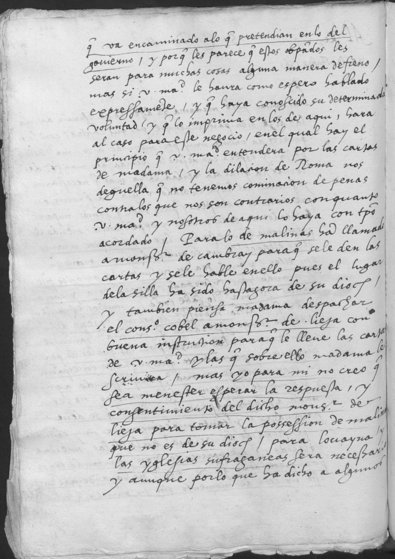 q̃ va encaminado alo q̃ pretendian enlo del
govierno / y porq̃ les pareçe q̃ estos obpãdos les
seran para muchas cosas alguna manera de freno /
mas si v. ma.d le havra como espero hablado
expressamẽte / y q̃ haya conosçido su determinada
voluntad / y q̃ lo imprima en los de aqui / hara
al caso para este negoçio / enel qual hay el
prinçipio q̃ v. ma.d entendera por las cartas
de madama / y la dilaçion de Roma nos
deguella q̃ no tenemos comminaçion de penas
contralos que nos son contrarios conquanto
v. ma.d y nosotros de aqui lo haya con tpõ
acordado / Para lo de malinas had llamado
a monsr. de cambray paraq̃ se le den las
cartas y se le hable enello pues el lugar
dela silla ha sido hastagora de su dioçs /
y tambien piensa madama despachar
el conso. cobel a monsr. de lieja con
buena instruction paraq̃ le lleve las cartas
de v. ma.d y las q̃ sobre ello madama le
scrivira / mas yo para mi no creo q̃
sea menester esperar la respuesta / y
consentimiento del dicho monsr. de
lieja para tomar la possession de malinas
que no es de su dioçs / para lovayna y
las yglesias sufraganeas sera necessario
y aunque por lo que ha dicho a algunos